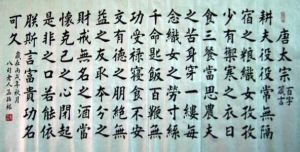 唐太宗百字箴言
耕夫役役常無隔
宿之糧織女孜孜
少有禦寒之衣日
食三餐當思農夫
之苦身穿一縷每
念織女之勞寸絲
千命匙飯百鞭無
功受祿寢食不安
交有德之朋絕無
益之友求本分之
財戒無名之酒當
懷克己之心閉起
是非之口若能依
朕斯言富貴功名
可久
丙戌年秋月